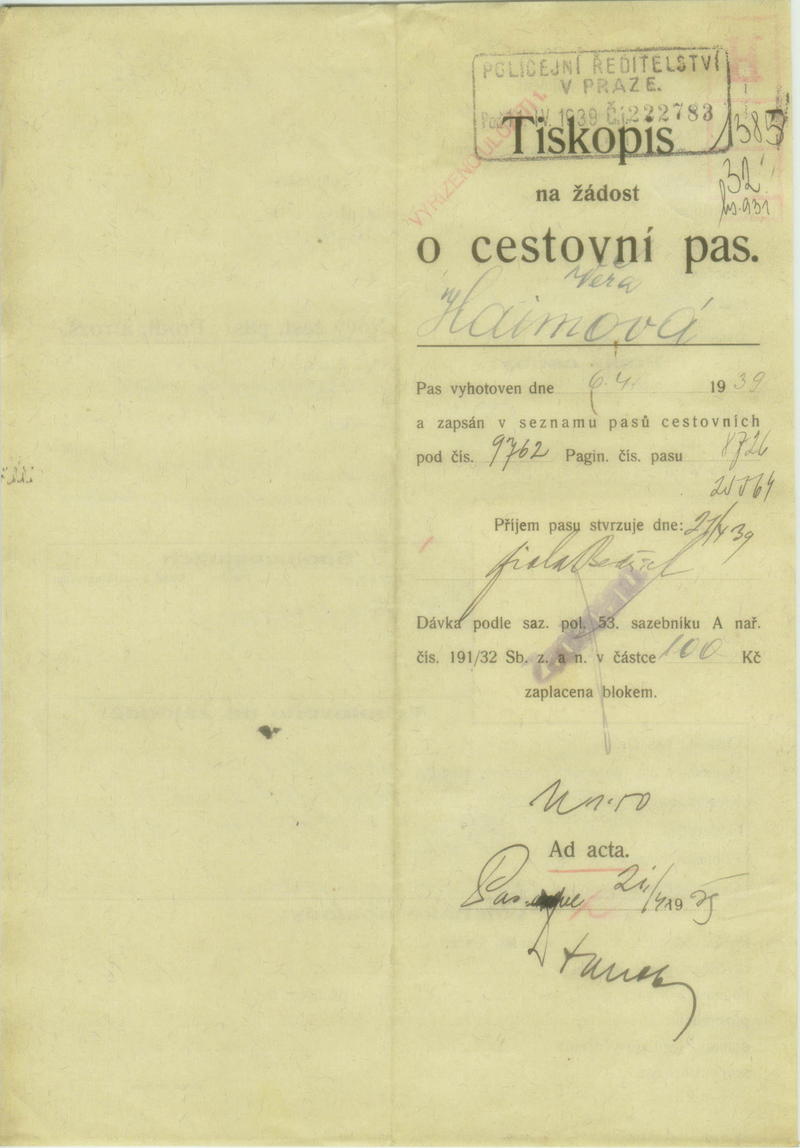 POLICEJNÍ ŘEDITELSTVÍ
V PRAZE.
IV. 1939 Čj. 222783
Tiskopis
1385
32
na žádost
o cestovní pas.
Věra
Haimová
Pas vyhotoven dne 6.4. 1939
a zapsán v seznamu pasů cestovních
pod čís. 9762 Pagin. čís. pasu 8726
Příjem pasu stvrzuje dne: 21/4 39
Dávka podle saz. pol. 53. sazebníku A nař.
čís. 191/32 Sb. z. a n. v částce 100 Kč
zaplacena blokem.
Ad acta.
21/4 1939